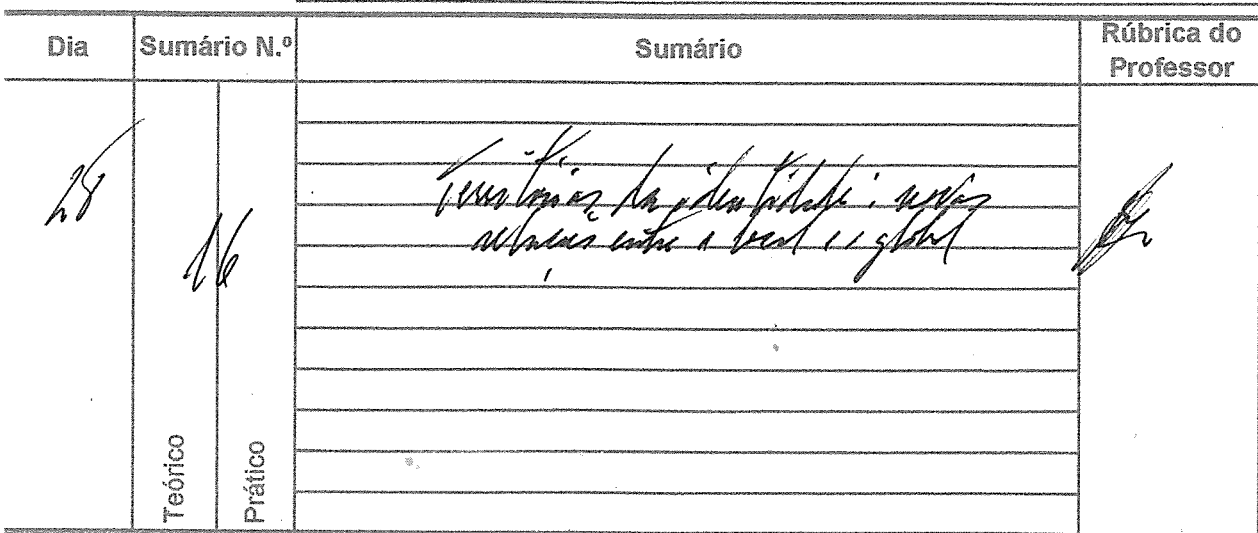 Dia Sumário N.º Sumário Rúbrica do Professor
28
16
Territórios da identidade: novas
relações entre o local e o global
Teórico
Prático